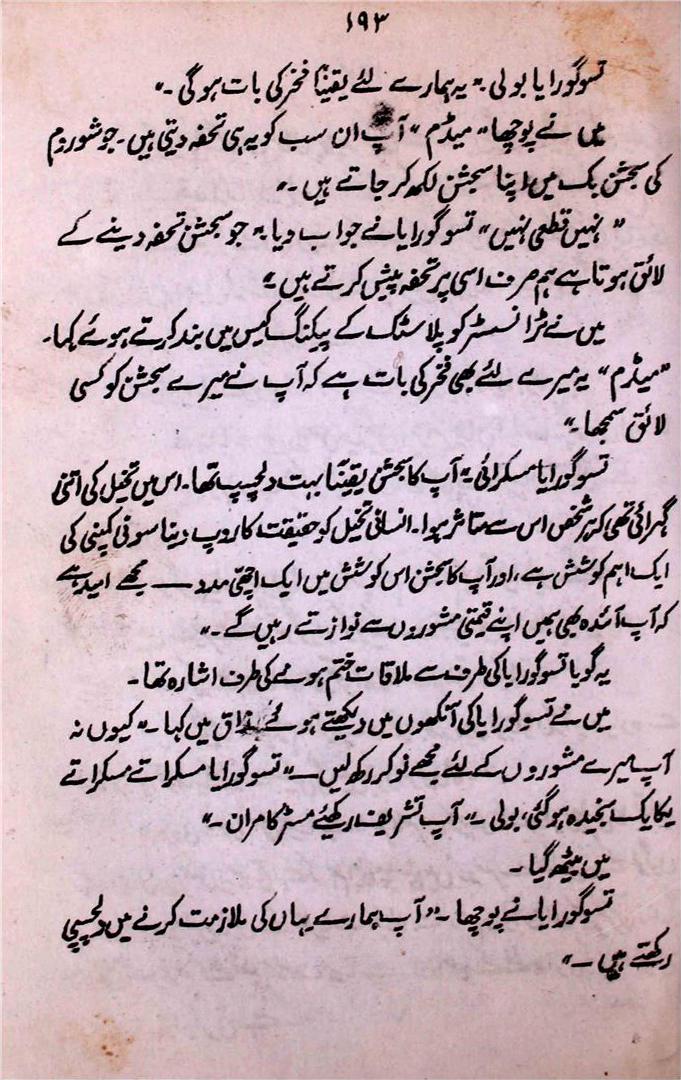 ۱۹۳
تسوگورایا بولی۔ "یہ ہمارے لئے یقیناً فخر کی بات ہوگی۔"
میں نے پوچھا "میڈم" آپ ان سب کو یہ ہی تحفہ دیتی ہیں۔ جو شوروم
کی سجشن بک میں اپنا سجشن لکھ کر جاتے ہیں۔"
"نہیں قطعی نہیں" تسوگورایا نے جواب دیا۔ "جو سجشن تحفہ دینے کے
لائق ہوتا ہے ہم صرف اسی پر تحفہ پیش کرتے ہیں"
میں نے ٹرانسسٹر کو پلاسٹک کے پیکنگ کیس میں بند کرتے ہوئے کہا۔
"میڈم" یہ میرے لئے بھی فخر کی بات ہے کہ آپ نے میرے سجشن کو کسی
لائق سمجھا۔"
تسوگورایا مسکرائی۔ "آپ کا سجشن یقیناً بہت دلچسپ تھا۔ اس میں تخیل کی اتنی
گہرائی تھی کہ ہر شخص اس سے متاثر ہوا۔ انسانی تخیل کو حقیقت کا روپ دینا سونی کمپنی کی
ایک اہم کوشش ہے، اور آپ کا سجشن اس کوشش میں ایک اچھی مدد —— مجھے امید ہے
کہ آپ آئندہ بھی ہمیں اپنے قیمتی مشوروں سے نوازتے رہیں گے۔"
یہ گویا تسوگورایا کی طرف سے ملاقات ختم ہونے کی طرف اشارہ تھا۔
میں نے تسوگورایا کی آنکھوں میں دیکھتے ہوئے مذاق میں کہا۔ "کیوں نہ
آپ میرے مشوروں کے لئے مجھے نوکر رکھ لیں —" تسوگورایا مسکراتے مسکراتے
یکایک سنجیدہ ہو گئی، بولی۔ "آپ تشریف رکھیئے مسٹر کامران۔"
میں بیٹھ گیا۔
تسوگورایا نے پوچھا۔ "آپ ہمارے یہاں کی ملازمت کرنے میں دلچسپی
رکھتے ہیں —"